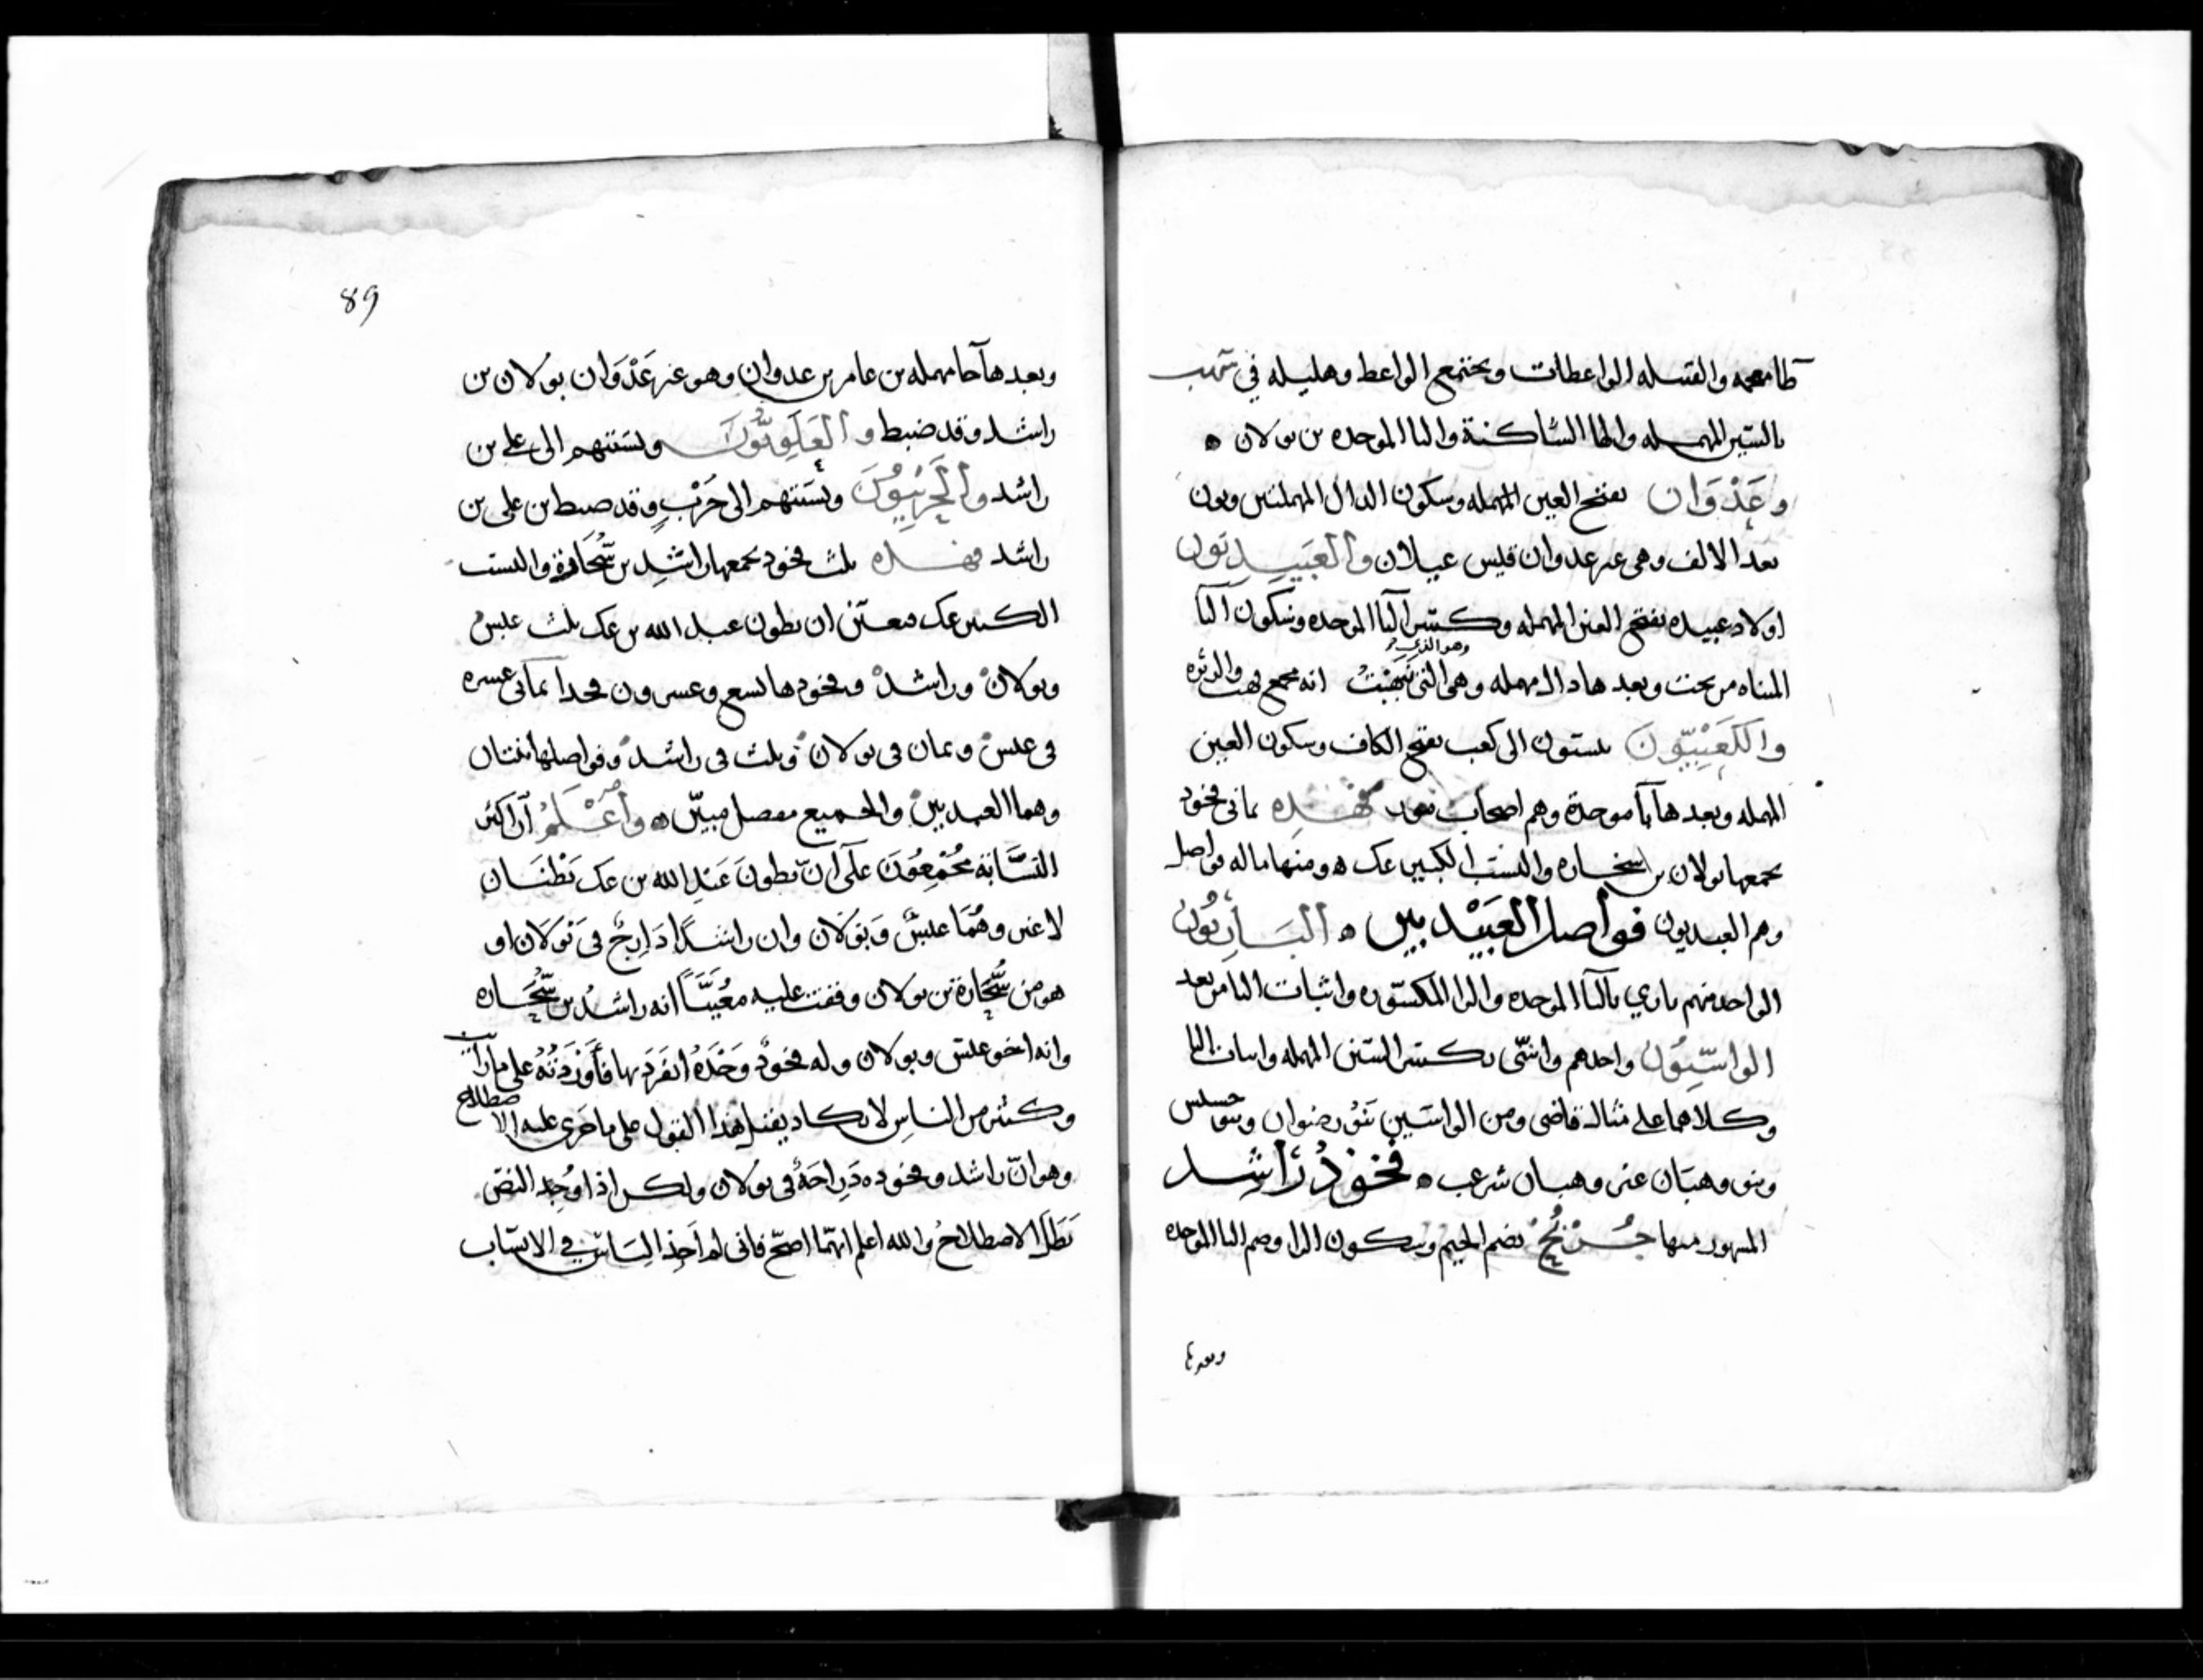 ظا معجمه والقبيله الواعظات ويجتمع الواعظ وهليله في
بالسين المهمله والطا الساكنة والبا الموحده بن بولان ه
وعَدْوَان بفتح العين المهمله وسكون الدال المهملتين ونون
بعد الالف وهى غير عدوان قيس عيلان والعَبيديون
اولاد عبيده بفتح العين المهمله وكسر البا الموحده وسكون اليا
المثناه من تحت وبعدها دال مهمله وهى التى انه مجمع
والكَعْبِيّون ينسبون الى كعب بفتح الكاف وسكون العين
المهمله وبعدها بآ موحدة وهم اصحاب فهذه ثمانى فخوذ
يجمعها بولان بن سحاره والنسب الكبير عك ه ومنها ماله فواصل
وهم العبيديون فواصل العَبيْديين ه البَارِيُون
الواحد منهم بارى بالبا الموحده والرا المكسوره واثبات اليا من بعد
الواسِيُون واحدهم واسى بكسر السين المهمله واثبات اليا
وكلاهما على مثال قاضى ومن الواسيين بَنُو رضوان وبنو
وبنو وهبان غير وهبان شرعب ه فخوذ رَاشِد
المشهور منها جُرْبُحْ بضم الجيم وسكون الرا وضم البا الموحده
وبعدها
89
وبعدها حا مهمله بن عامر بن عدوان وهو غير عَدْوَان بولان بن
راشد وقد ضبط والعَلَوِيُّونَ ونسبتهم الى على بن
راشد والحَرْبِيُونَ ونسبتهم الى حَرْب وقد ضبط بن على بن
راشد فهذه ثلث فخوذ يجمعها راشِد بن سُحَارة والنسب
الكبير عك فتعين ان بطون عبد الله بن عك ثلث عبس
وبولان وراشد وفخوذها تسع وعشرون فخذا ثمانى عشره
فى عبس وثمان فى بولان وثلث فى راشد وفواصلها ثنتان
وهما العبيديين والجميع مفصل مبيّن ه وأعْلَمْ أن اكثر
النسَّابة مُجْمِعُونَ على أن بطونَ عَبْدِ الله بن عك بَطْنَان
لا غير وهُمَا عبسٌ وبَولان وان راشداً دَارِجٌ فى بَولان او
هو من سُحَارة بن بولان وقفت عليه معُيَّناً انه راشدُ بن سُحَاره
وانه اخو عبس وبولان وله فخوذٌ وَحْدَهُ انفرَد بها فأوْرَدْتُهُ على ما رايت
وكثير من الناس لا يكاد يقبل هذا القول على ما جَرَى عليه الاصطلاح
وهو انّ راشد وفخوذه دَارجةٌ فى بولان ولكن اذا وُجِد النص
بَطَلَ الاصطلاحُ والله اعلم ايهما اصحّ فانى لم اجِد الناس فى الانساب